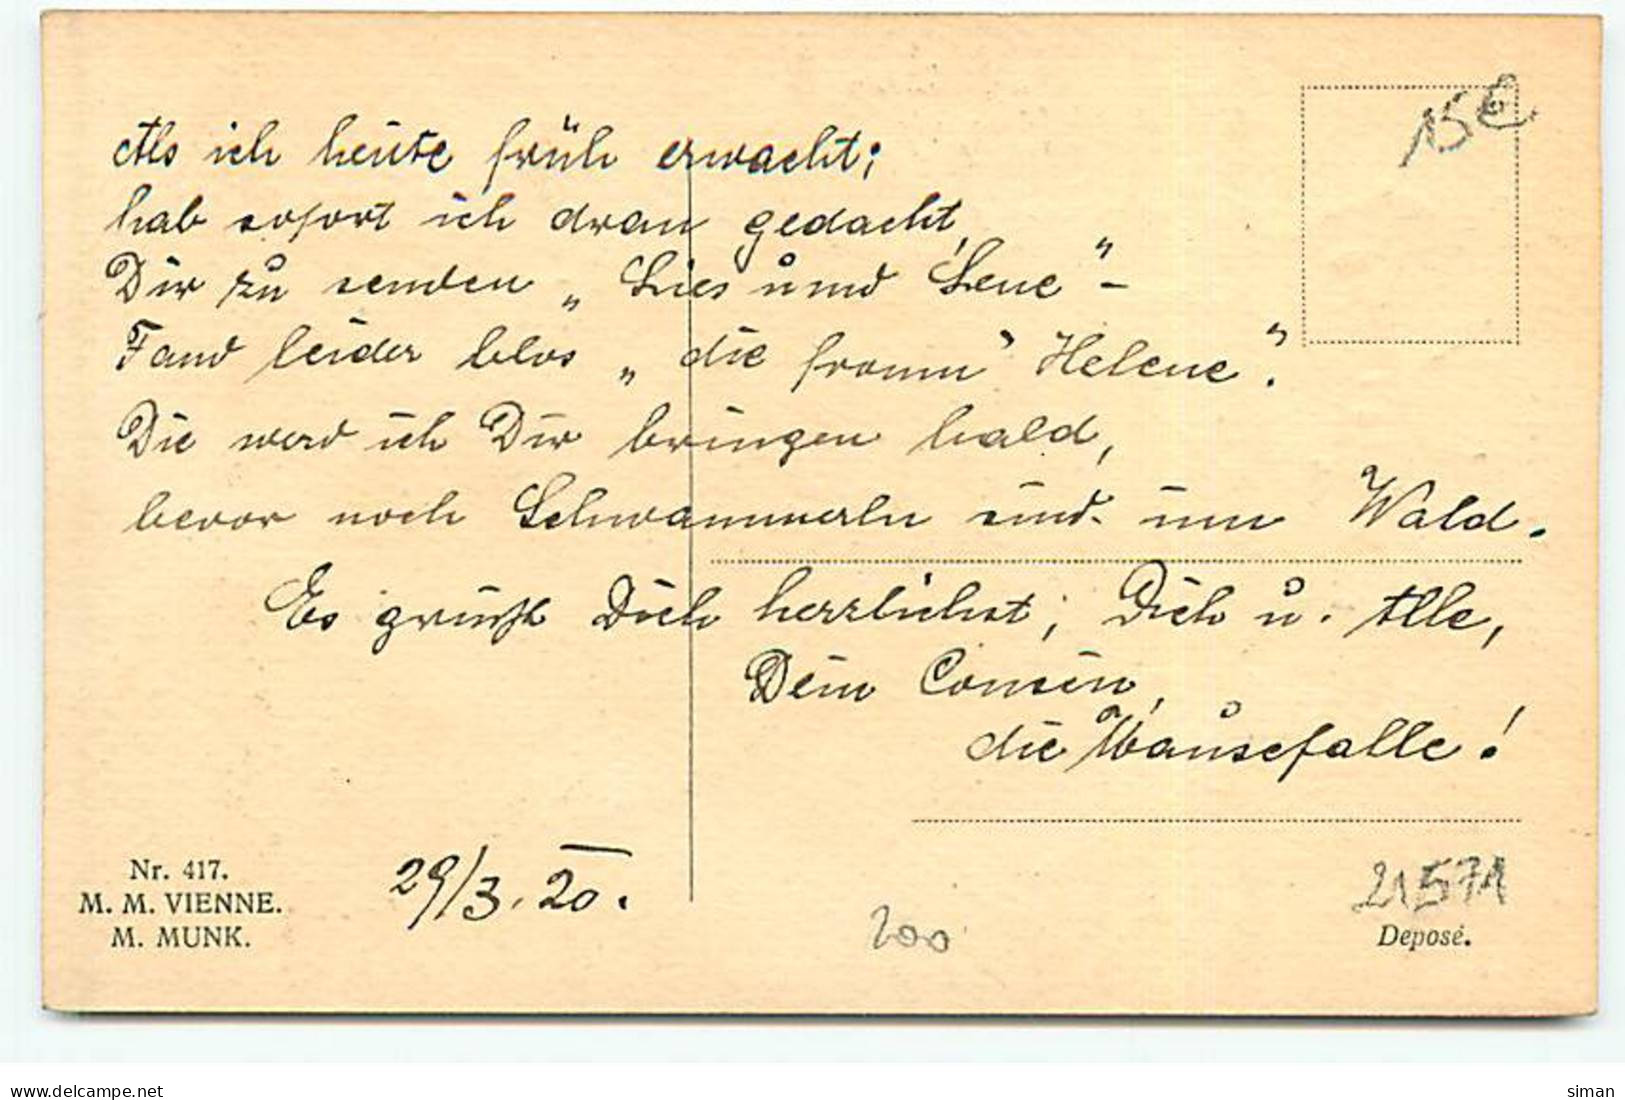 Als ich heute früh erwacht;
hab sofort ich dran gedacht,
Dir zu senden „Lies und Lene" –
Fand leider blos „die fromm' Helene".
Die werd ich Dir bringen bald,
bevor noch Schwammerln sind im Wald.
Es grüßt Dich herzlichst, Dich u. Alle,
Dein Cousin,
die Mausefalle!
29/3. 20.
15 €
Nr. 417.
M. M. VIENNE.
M. MUNK.
200
21571
Deposé.
www.delcampe.net
siman